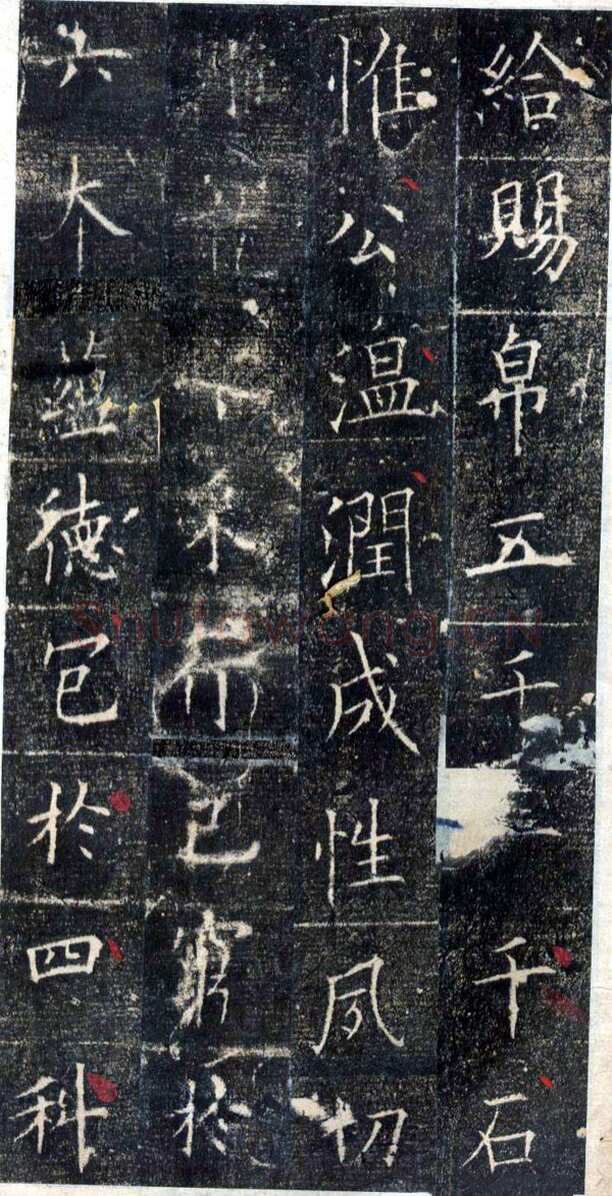 給賜帛五千千石
惟公温潤成性夙切
行己窮於
六本蘊德包於四科
Shufawang.CN